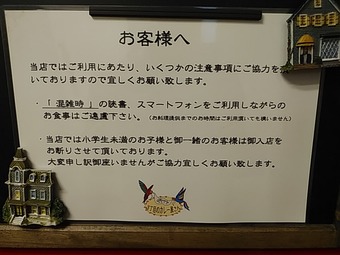 お客様へ
当店ではご利用にあたり、いくつかの注意事項にご協力を
いておりますので宜しくお願い致します。
・「混雑時」の読書、スマートフォンをご利用しながらの
お食事はご遠慮下さい。(お料理提供までのお時間はご利用頂いても構いません)
・当店では小学生未満のお子様と御一緒のお客様は御入店を
お断りさせて頂いております。
大変申し訳御座いませんがご協力宜しくお願い致します。